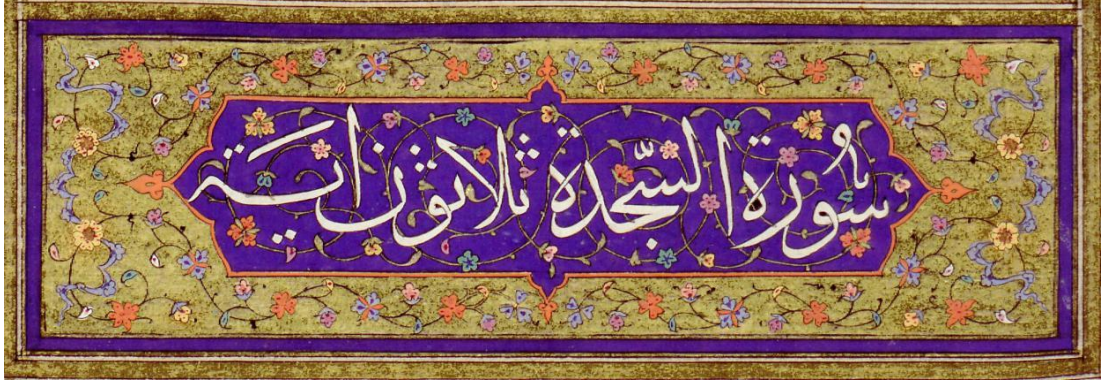 سُورَة السَّجدة ثلاثون اية